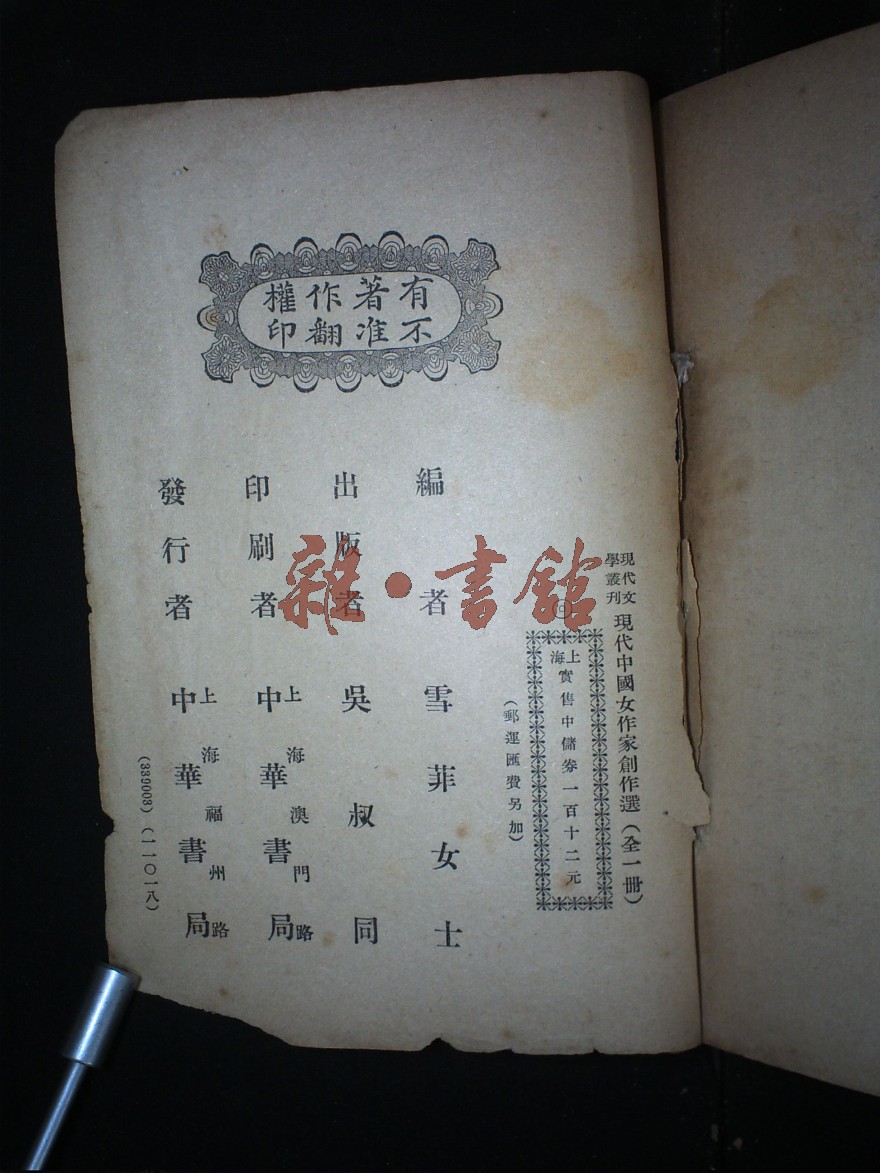 有著作權
不准翻印
現代文學叢刊 現代中國女作家創作選（全一冊）
◎
上海實售中儲券一百十二元
（郵運匯費另加）
編者 雪菲女士
出版者 吳叔同
印刷者 上海澳門路 中華書局
發行者 上海福州路 中華書局
（339003）（一一〇一八）
雜·書館